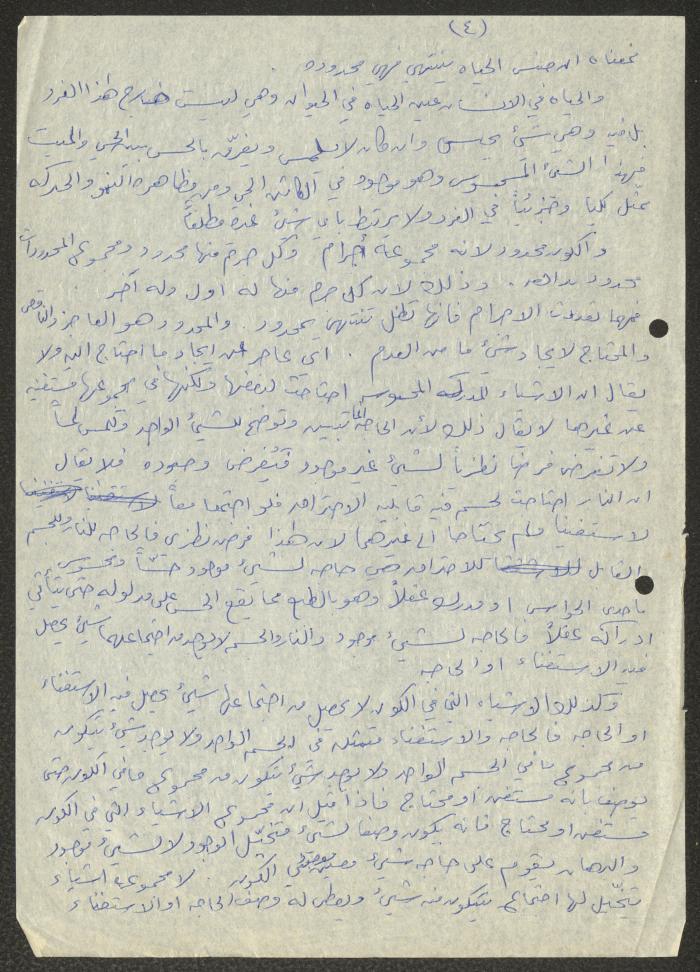 (٤)
فمعناه ان جنس الحياه ينتهي فهي محدوده .
والحياه في الانسان عين الحياه في الحيوان وهي ليست خارج هذا الفرد
بل فيه وهي شيئ يحس وان كان لا يلمس ويفرّق بالحس بين الحي والميت
فهذا الشيئ المحسوس وهو موجود في الكائن الحي ومن مظاهره النمو والحركه
يمثل كليا وجزئياً في الفرد ولا يرتبط باي شيئ غيره مطلقاً
والكون محدود لانه مجموعة أجرام وكل جرم منها محدود ومجموع المحدودات
محدود بداهه . وذلك لان كل جرم منها له اول وله آخر
فمهما تعددت الاجرام فانها تظل تنتهي بمحدود . والمحدود هو العاجز والناقص
والمحتاج لايجاد شيئ ما من العدم . اي عاجز عن ايجاد ما احتاج اليه ولا
يقال ان الاشياء المدركه المحسوسه احتاجت لبعضها ولكنها في مجموعها مستغنيه
عن غيرها لا يقال ذلك لأن الحاجه انما تبين وتوضح للشيئ الواحد وتلمس لمساً
ولا تفرض فرضا نظرياً لشيئ غير موجود فيُفرض وجوده فلا يقال
ان النار احتاجت لجسم فيه قابلية الاحتراق فلو اجتمعا معاً
لاستغنيا ولم يحتاجا الى غيرهما لان هذا فرض نظري فالحاجه للنار وللجسم
القابل للاحتراق هي حاجه لشيئ موجود حساً ومحسوس
باحدى الحواس او مدرك عقلاً وهو بالطبع مما يقع الحس على مدلوله حتى يتأتى
ادراكه عقلاً فالحاجه لشيئ موجود والنار والجسم لا يوجد من اجتماعهما شيئ يحصل
فيه الاستغناء او الحاجه
وكذلك الاشياء التي في الكون لا يحصل من اجتماعها شيئ يحصل فيه الاستغناء
او الحاجه فالحاجه والاستغناء متمثله في الجسم الواحد ولا يوجد شيئ يتكون
من مجموع ما في الجسم الواحد ولا يوجد شيئ يتكون من مجموع ما في الكون حتى
يوصف بانه مستغن او محتاج فاذا قيل ان مجموع الاشياء التي في الكون
مستغن او محتاج فانه يكون وصفا لشيئ متخيّل الوجود لا لشيئ موجود
والبرهان يقوم على حاجه شيئ معين موجود في الكون . لا مجموعة اشياء
يتخيّل لها اجتماع يتكون منه شيئ ويعطى له وصف الحاجه او الاستغناء